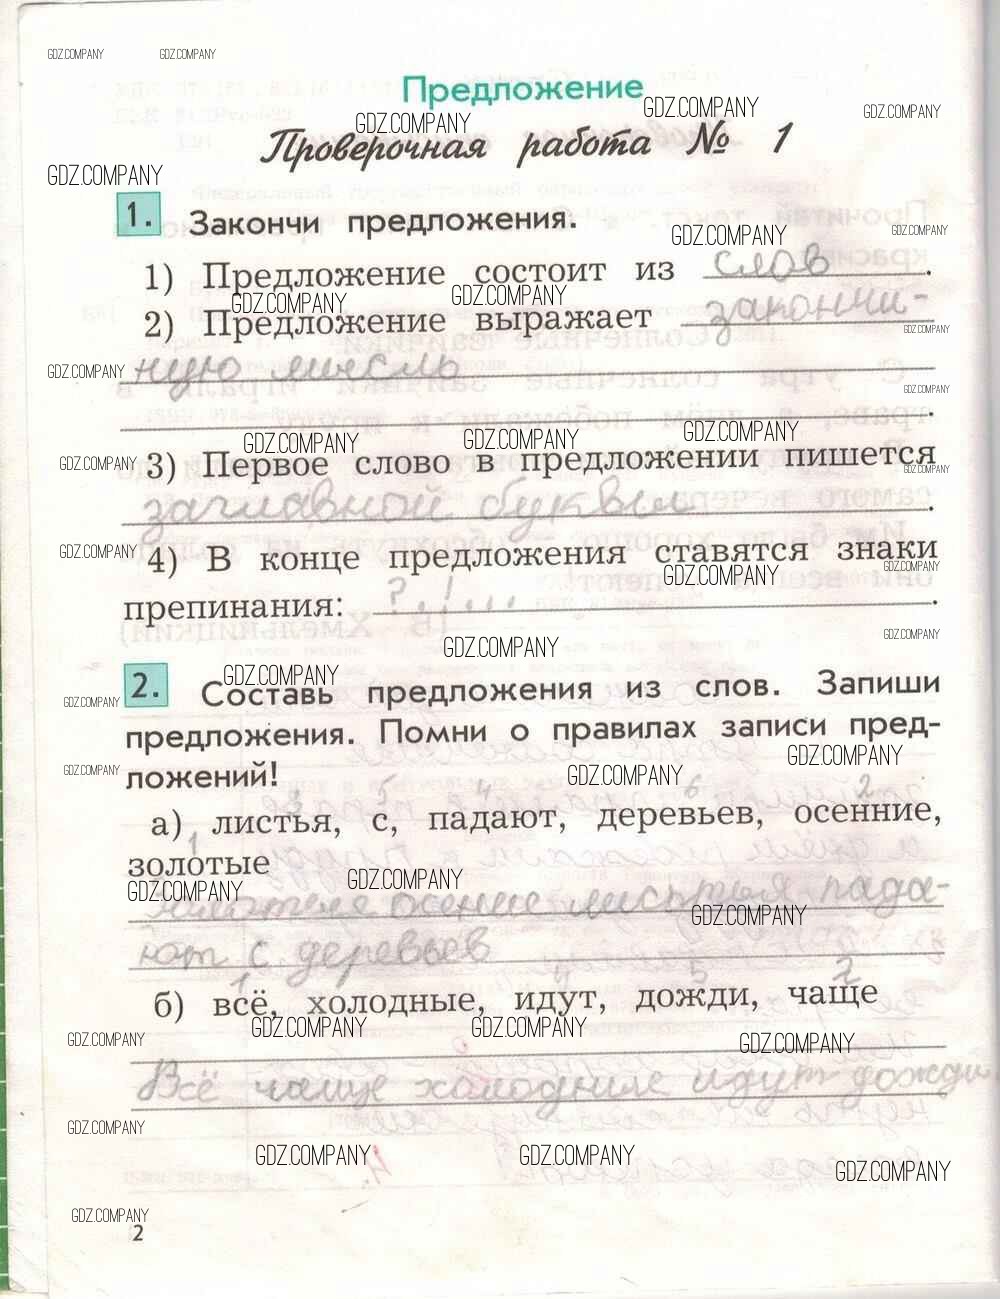 GDZ.COMPANY GDZ.COMPANY
Предложение
GDZ.COMPANY GDZ.COMPANY
GDZ.COMPANY
Проверочная работа № 1
GDZ.COMPANY
1. Закончи предложения.
GDZ.COMPANY GDZ.COMPANY
1) Предложение состоит из слов.
GDZ.COMPANY GDZ.COMPANY
2) Предложение выражает закончи-
GDZ.COMPANY
GDZ.COMPANY ную мысль
GDZ.COMPANY
.
GDZ.COMPANY GDZ.COMPANY GDZ.COMPANY
GDZ.COMPANY 3) Первое слово в предложении пишется
GDZ.COMPANY
заглавной буквы.
GDZ.COMPANY 4) В конце предложения ставятся знаки
GDZ.COMPANY GDZ.COMPANY
препинания: ? . ! ... .
GDZ.COMPANY GDZ.COMPANY
GDZ.COMPANY
2. Составь предложения из слов. Запиши
GDZ.COMPANY
предложения. Помни о правилах записи пред-
GDZ.COMPANY
GDZ.COMPANY ложений! GDZ.COMPANY
3 5 4 6 2
а) листья, с, падают, деревьев, осенние,
1
золотые
GDZ.COMPANY GDZ.COMPANY
осение листья пада-
GDZ.COMPANY
ют с деревьев
1 4 5 2
б) всё, холодные, идут, дожди, чаще
GDZ.COMPANY GDZ.COMPANY
GDZ.COMPANY GDZ.COMPANY
Всё чаще холодные идут дожди
GDZ.COMPANY
GDZ.COMPANY GDZ.COMPANY
GDZ.COMPANY
GDZ.COMPANY
2